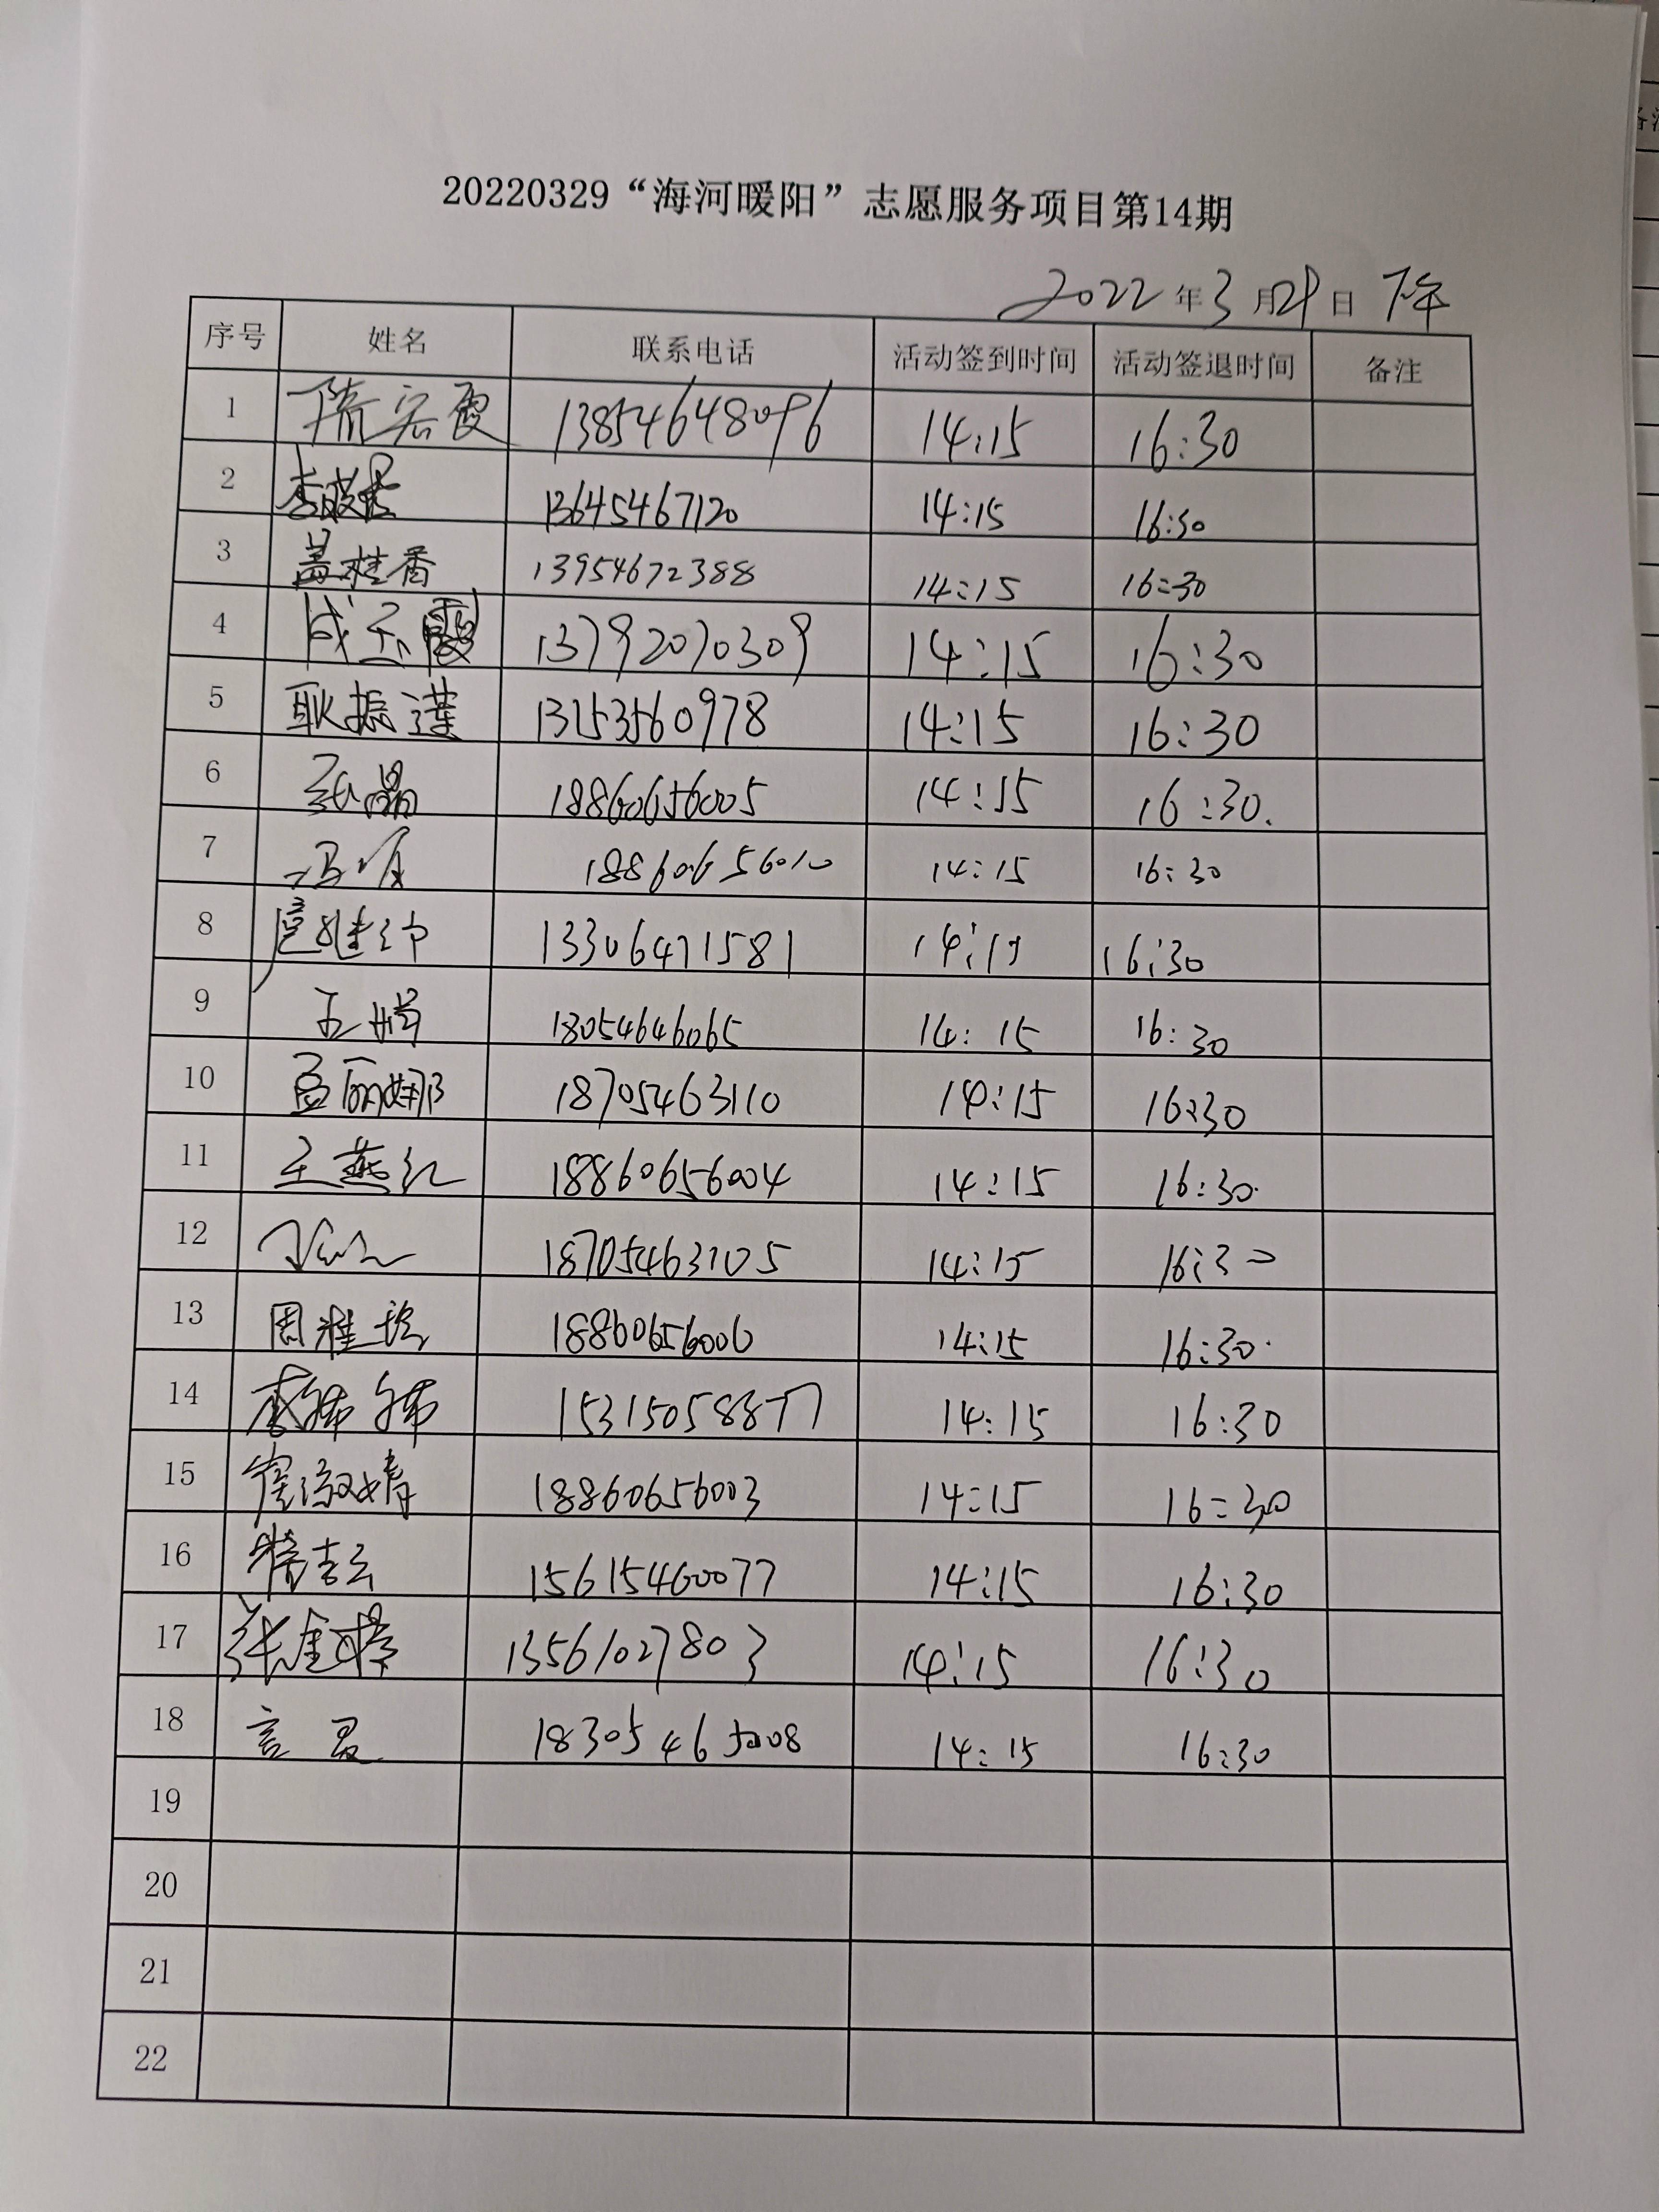 20220329“海河暖阳”志愿服务项目第14期
2022年3月29日 下午
序号 姓名 联系电话 活动签到时间 活动签退时间 备注
1 隋宏霞 13854648096 14:15 16:30
2 13645467120 14:15 16:30
3 盖桂香 13954672388 14:15 16:30
4 成玉霞 13792070309 14:15 16:30
5 耿振莲 13153560978 14:15 16:30
6 18860656005 14:15 16:30.
7 18860656010 14:15 16:30
8 13306471581 14:15 16:30
9 18054646065 14:15 16:30
10 孟丽娜 18705463110 14:15 16:30
11 王燕红 18860656004 14:15 16:30.
12 18705463105 14:15 16:30
13 周雅 18860656006 14:15 16:30.
14 李 15315058877 14:15 16:30
15 崔淑婧 18860656003 14:15 16:30
16 15615460077 14:15 16:30
17 张金 13561027803 14:15 16:30
18 18305465008 14:15 16:30
19
20
21
22